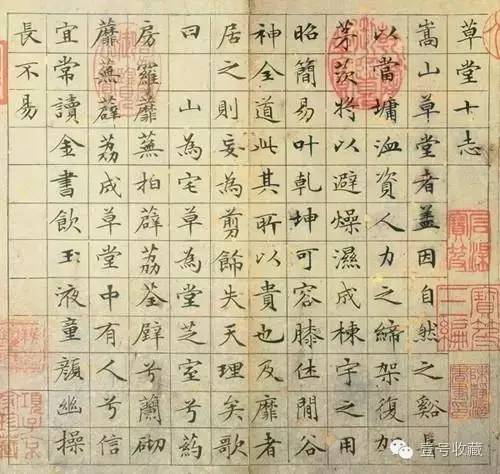 草堂十志
嵩山草堂者盖因自然之谿阜
以當墉洫資人力之締架復加
茅茨将以避燥濕成棟宇之用
昭簡易叶乾坤可容膝休閒谷
神全道此其所以貴也及靡者
居之則妄為剪飾失天理矣歌
曰 山為宅草為堂芝室兮葯
房羅蘼蕪拍薜荔荃壁兮蘭砌
蘼蕪薜荔成草堂中有人兮信
宜常讀金書飲玉液童顏幽操
長不易
壹号收藏